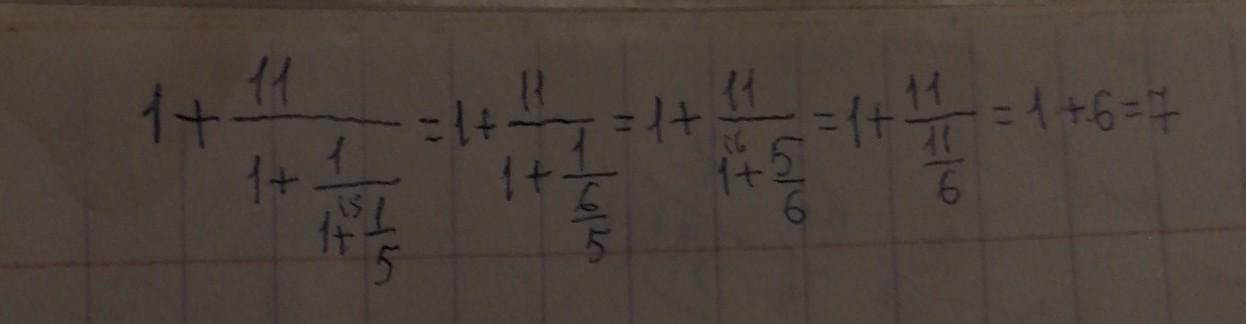 1 + \frac{11}{1 + \frac{1}{1 + \frac{1}{5}}} = 1 + \frac{11}{1 + \frac{1}{\frac{6}{5}}} = 1 + \frac{11}{1 + \frac{5}{6}} = 1 + \frac{11}{\frac{11}{6}} = 1 + 6 = 7